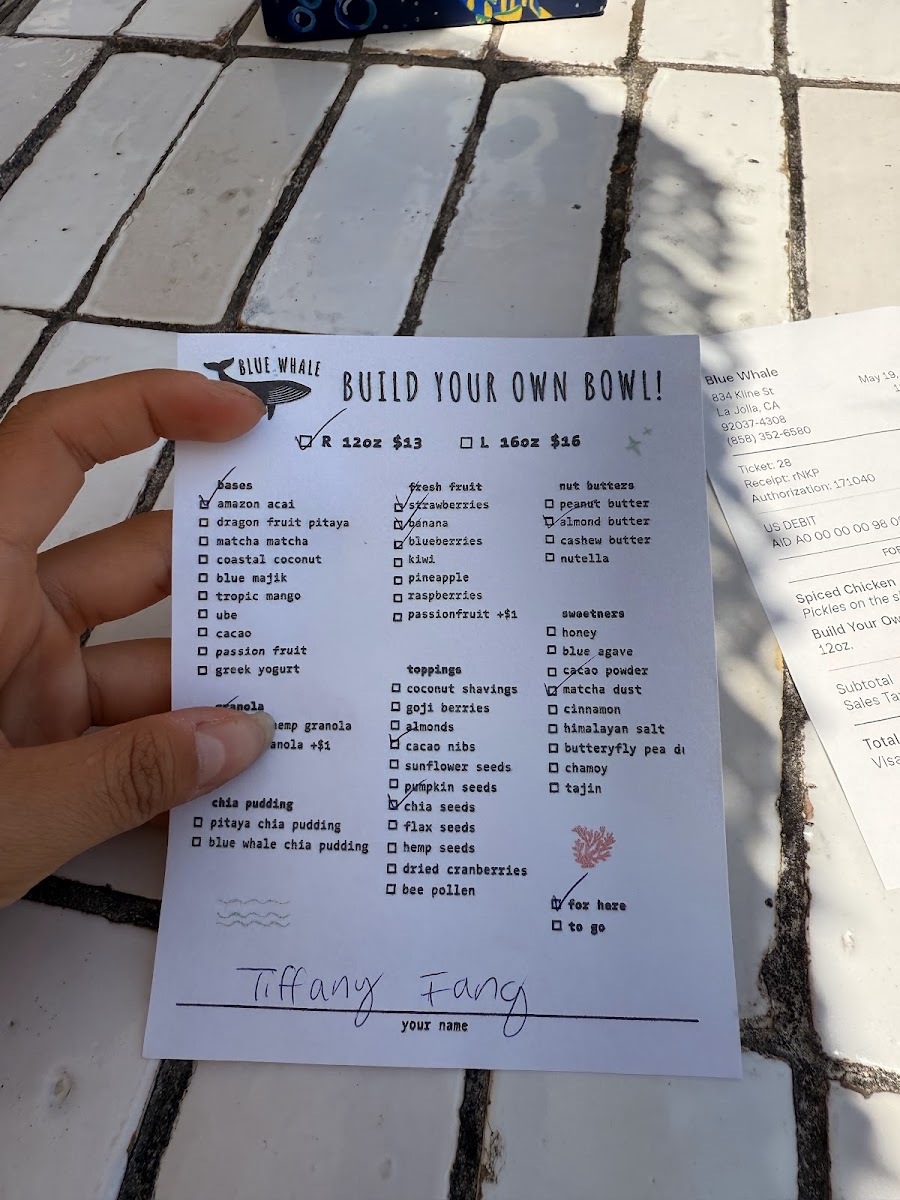 BLUE WHALE
BUILD YOUR OWN BOWL!
R 12oz $13
L 16oz $16
bases
amazon acai
dragon fruit pitaya
matcha matcha
coastal coconut
blue majik
tropic mango
ube
cacao
passion fruit
greek yogurt
granola
hemp granola
+$1
chia pudding
pitaya chia pudding
blue whale chia pudding
fresh fruit
strawberries
banana
blueberries
kiwi
pineapple
raspberries
passionfruit +$1
toppings
coconut shavings
goji berries
almonds
cacao nibs
sunflower seeds
pumpkin seeds
chia seeds
flax seeds
hemp seeds
dried cranberries
bee pollen
nut butters
peanut butter
almond butter
cashew butter
nutella
sweetners
honey
blue agave
cacao powder
matcha dust
cinnamon
himalayan salt
butteryfly pea
chamoy
tajin
for here
to go
Tiffany Fang
your name
Blue Whale
834 Kline St
La Jolla, CA
92037-4308
(858) 352-6580
May 19,
Ticket: 28
Receipt: rNKP
Authorization: 171040
US DEBIT
AID A0 00 00 00 98
Spiced Chicken
Pickles on the
Build Your
12oz,
Subtotal
Sales
Total